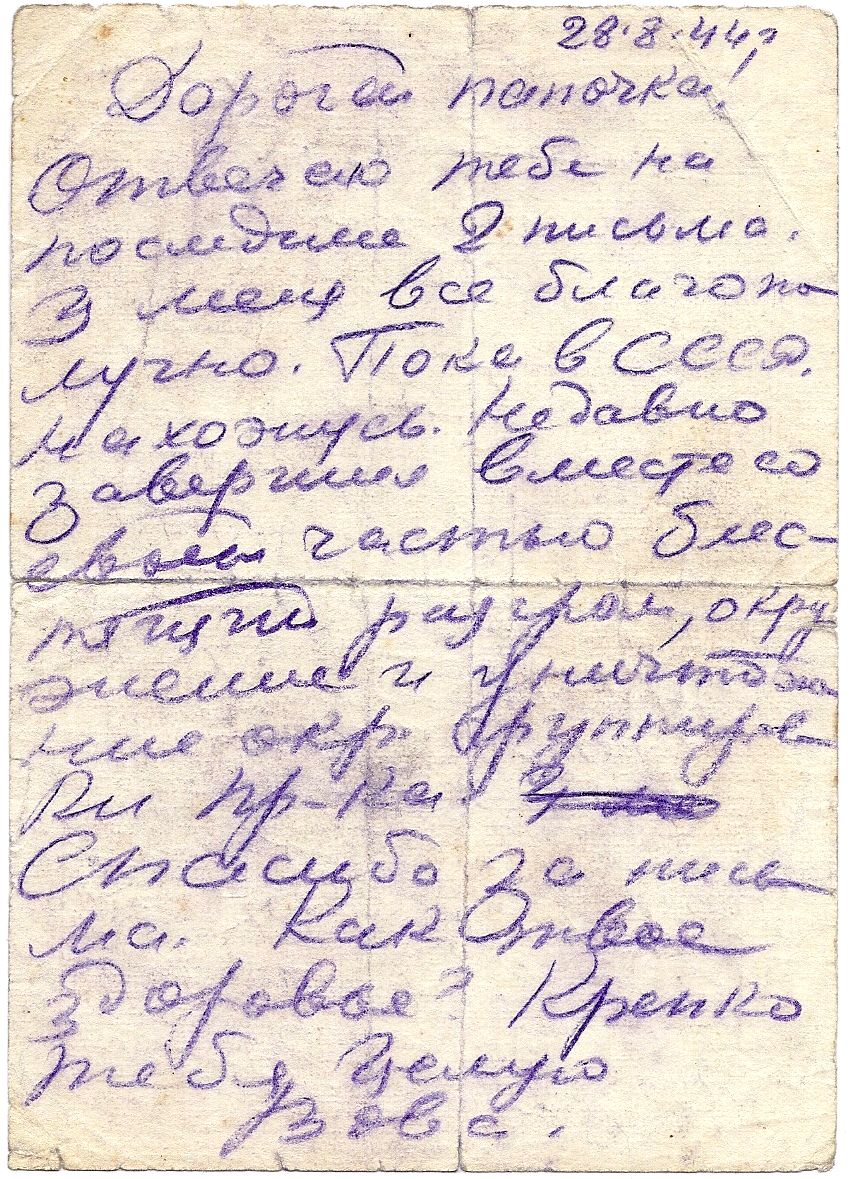 28·8·44г
Дорогой папочка!
Отвечаю тебе на
последние 2 письма.
У меня все благопо-
лучно. Пока в СССР.
нахожусь. Недавно
завершил вместе со
своей частью блес-
тящий разгром, окру
жение и уничтоже
ние окр. группиров
ки пр-ка.
Спасибо за пись
ма. Как твое
здоровье? Крепко
тебя целую
Вова.